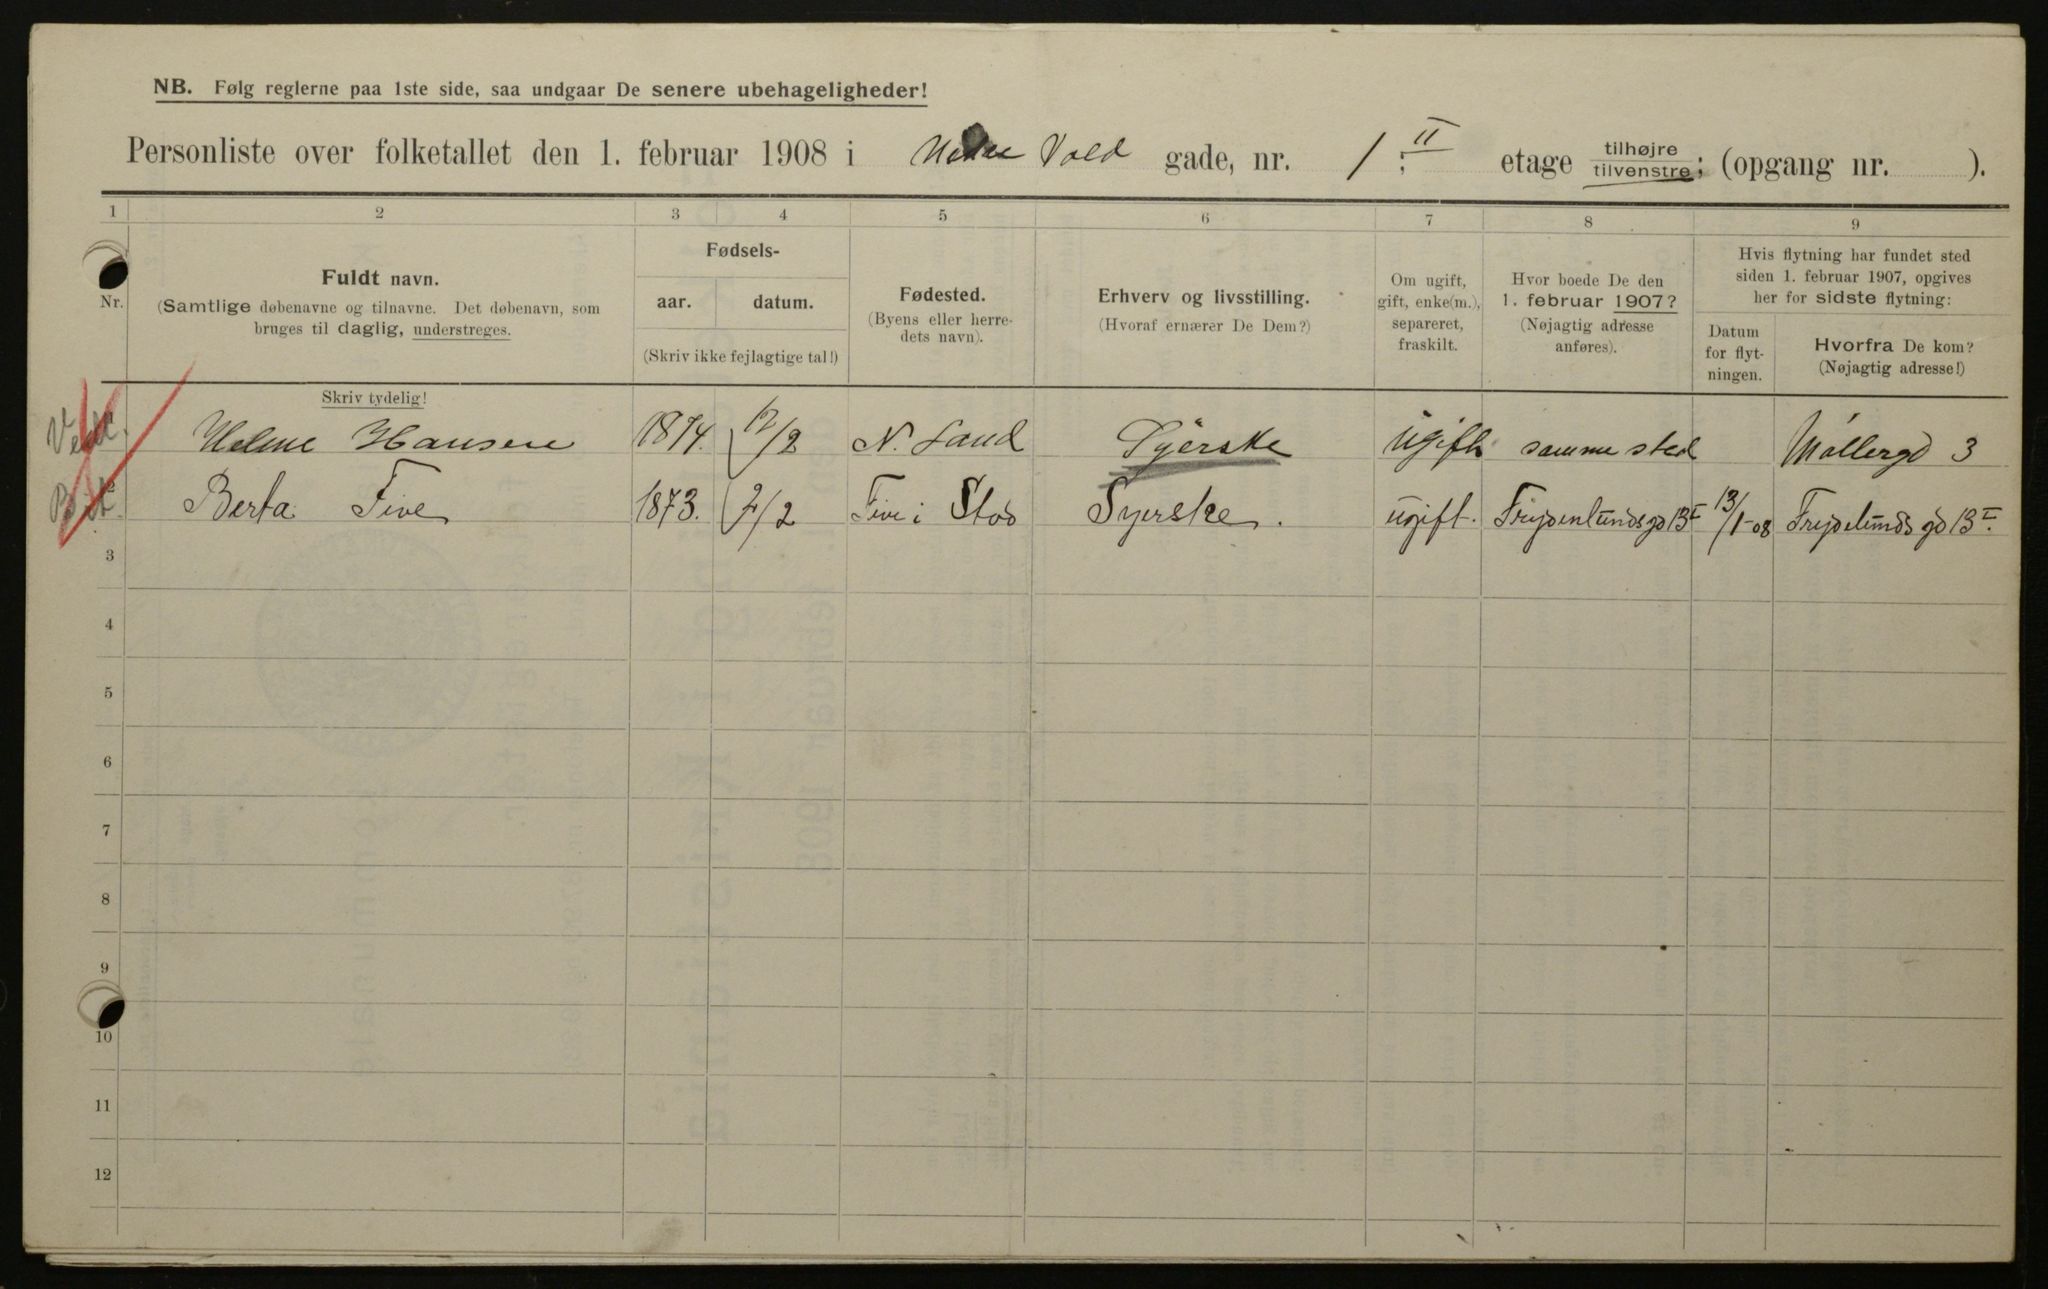 NB. Følg reglerne paa 1ste side, saa undgaar De senere ubehageligheder!
Personliste over folketallet den 1. februar 1908 i Nedre Vold gade, nr. 1; II etage tilhøjre tilvenstre; (opgang nr. ).
1 2 3 4 5 6 7 8 9
Nr.
Fuldt navn.
(Samtlige døbenavne og tilnavne. Det døbenavn, som
bruges til daglig, understreges.
Skriv tydelig!
Fødsels-
aar. datum.
(Skriv ikke fejlagtige tal!)
Fødested.
(Byens eller herre-
dets navn).
Erhverv og livsstilling.
(Hvoraf ernærer De Dem?)
Om ugift,
gift, enke(m.),
separeret,
fraskilt.
Hvor boede De den
1. februar 1907?
(Nøjagtig adresse
anføres).
Hvis flytning har fundet sted
siden 1. februar 1907, opgives
her for sidste flytning:
Datum
for flyt-
ningen.
Hvorfra De kom?
(Nøjagtig adresse!)
1 Helene Hansen 1874. 12/2 N. Land Syerske ugift samme sted Møllergd 3
2 Berta Five 1873. 2/2 Five i Stod Syerske. ugift. Frydenlundsgd 13 I 13/1-08 Frydelunds gd 13 I.
3
4
5
6
7
8
9
10
11
12